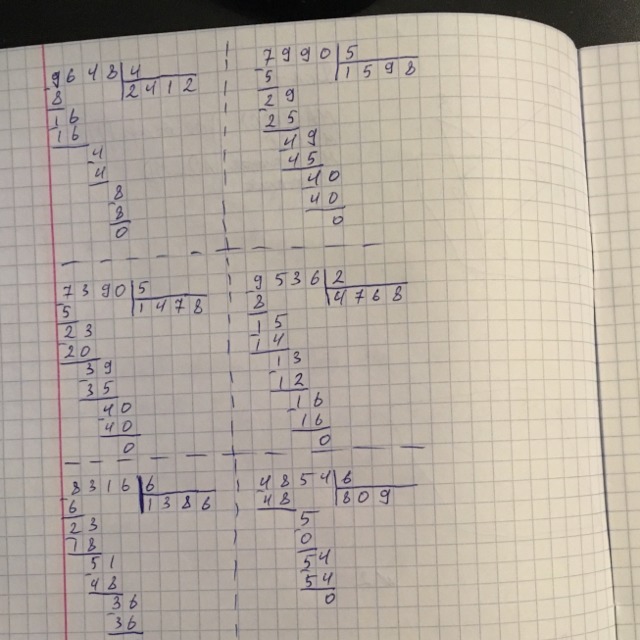 9648 4
8 2412
16
16
4
4
8
8
0
7990 5
5 1598
29
25
49
45
40
40
0
7390 5
5 1478
23
20
39
35
40
40
0
9536 2
8 4768
15
14
13
12
16
16
0
8316 6
6 1386
23
18
51
48
36
36
4854 6
48 809
5
0
54
54
0